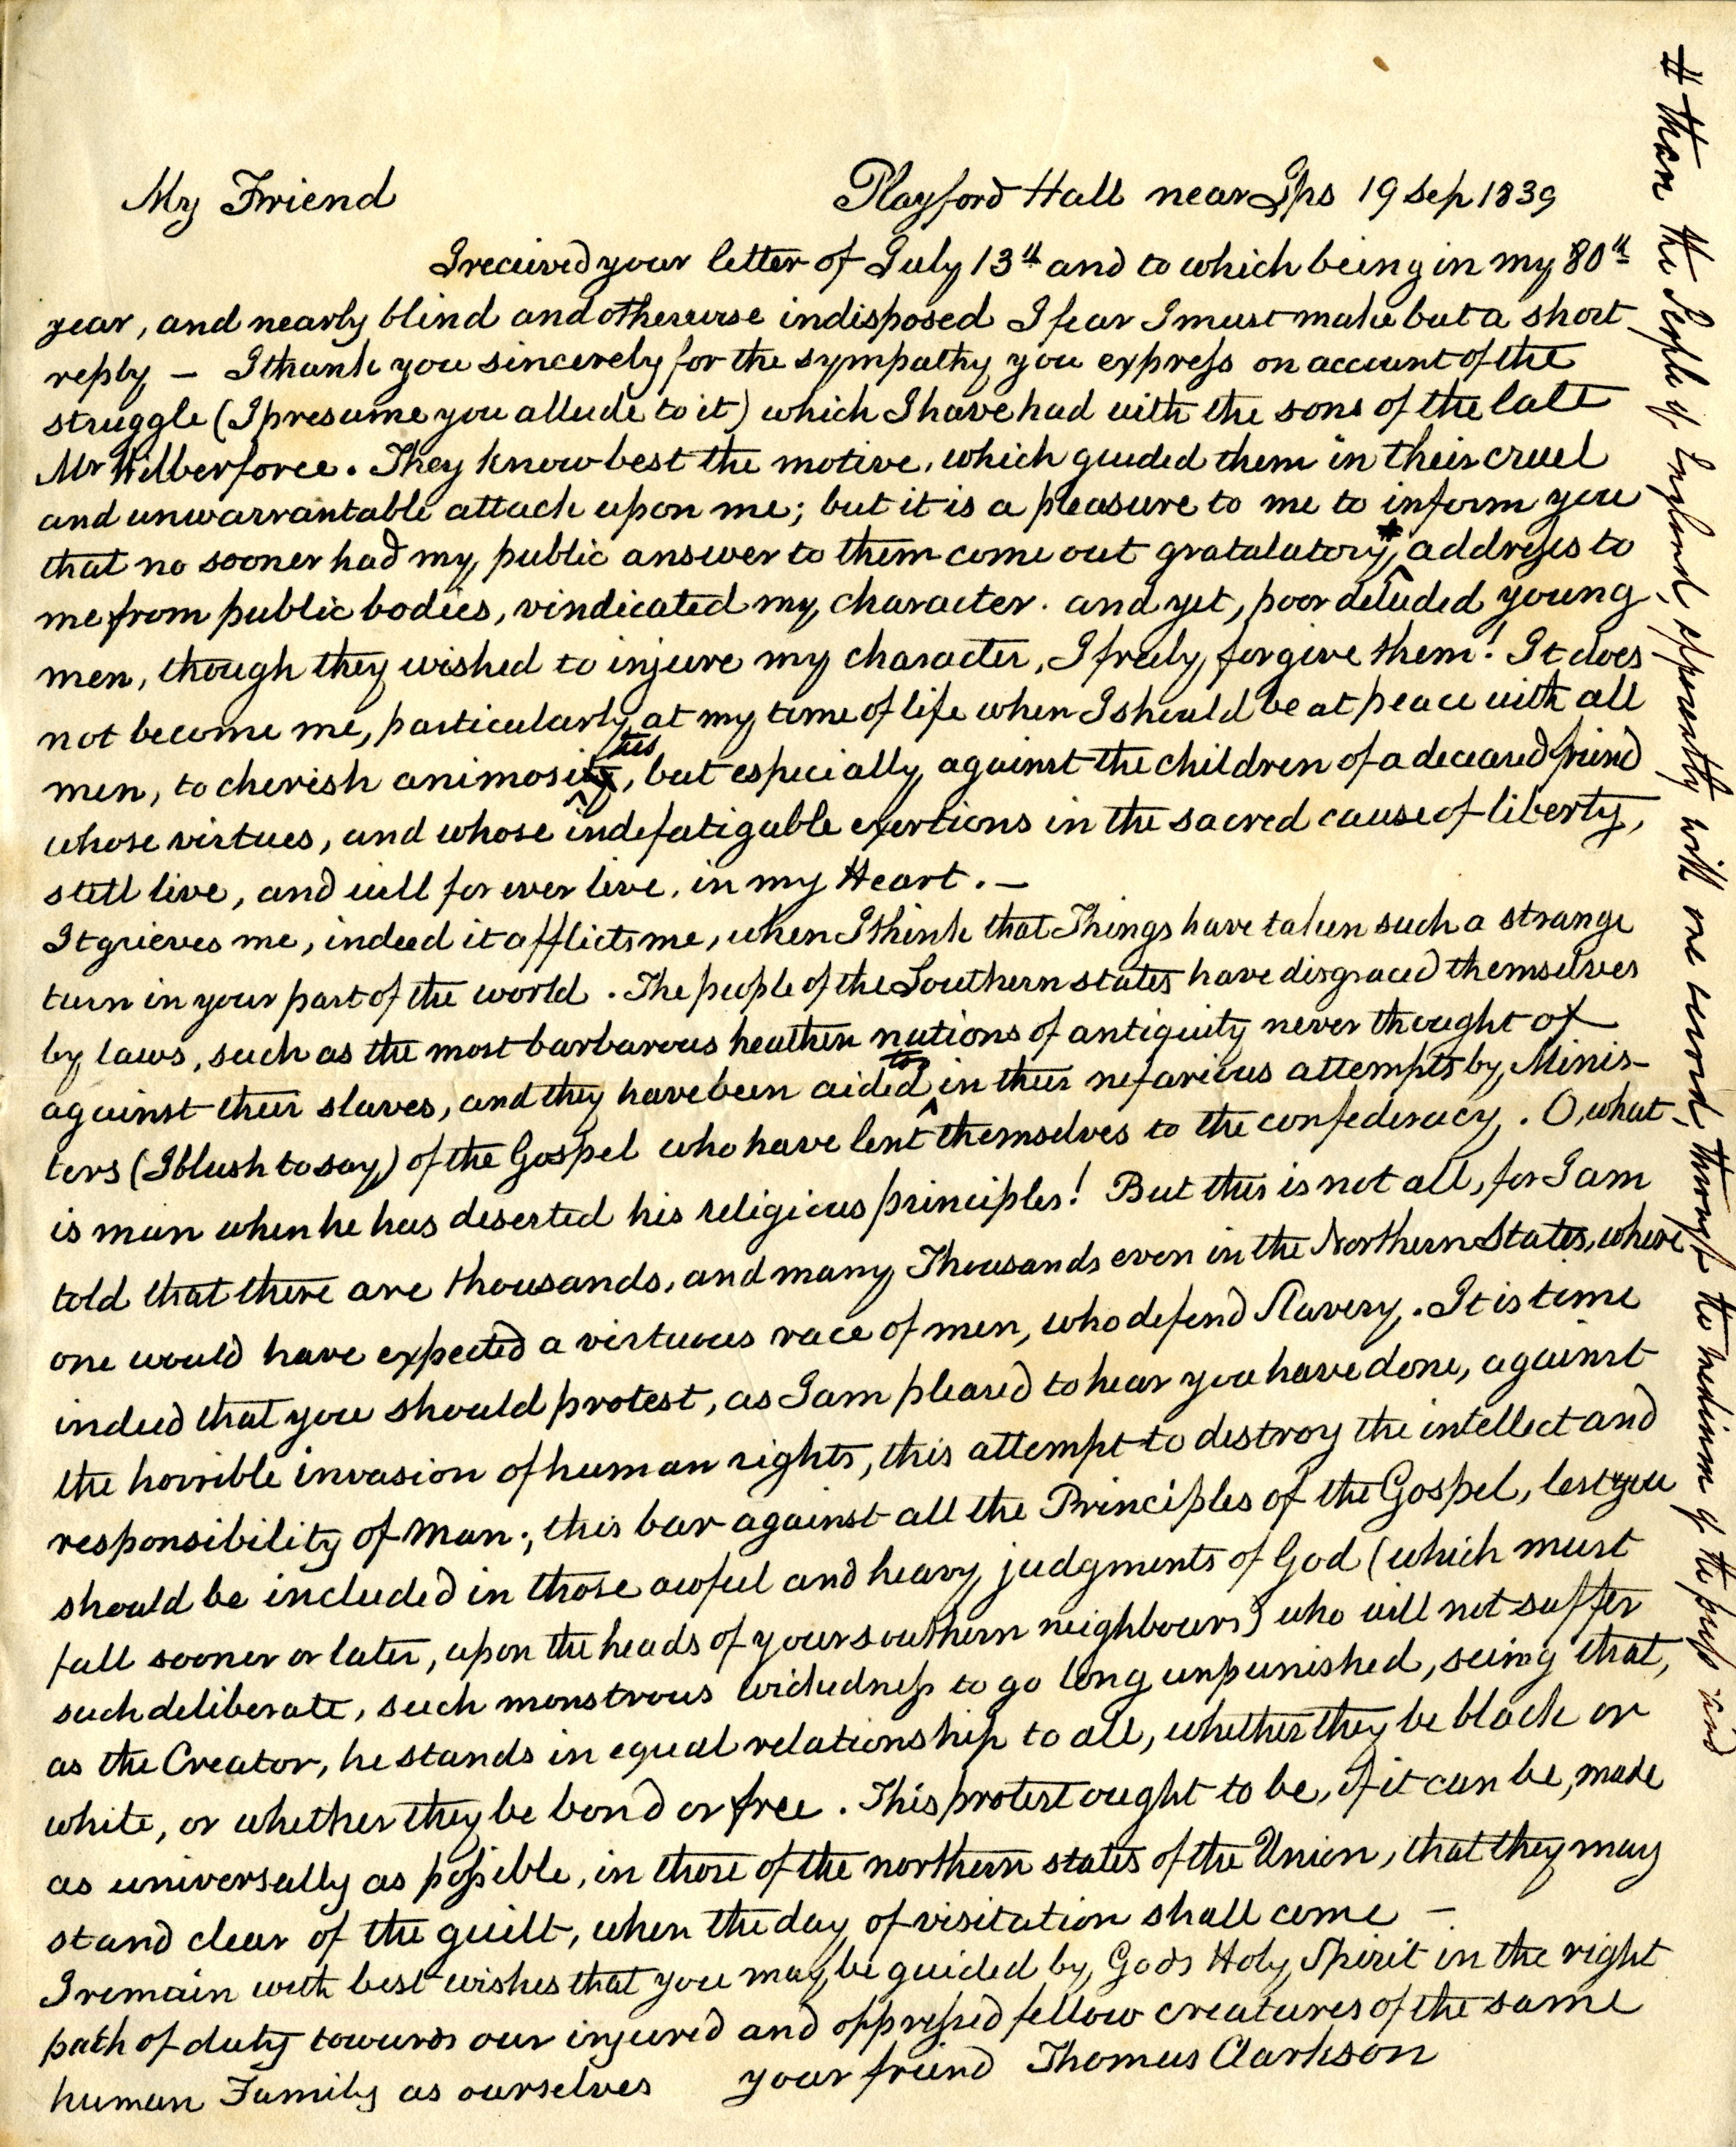 My Friend Playford Hall near Ips 19 Sep 1839
I received your letter of July 13th and to which being in my 80th
year, and nearly blind and otherwise indisposed I fear I must make but a short
reply — I thank you sincerely for the sympathy you express on account of the
struggle (I presume you allude to it) which I have had with the sons of the late
Mr Wilberforce. They know best the motive, which guided them in their cruel
and unwarrantable attack upon me; but it is a pleasure to me to inform you
that no sooner had my public answer to them come out gratulatory * addresses to
me from public bodies, vindicated my character. and yet, poor deluded young
men, though they wished to injure my character, I freely forgive them! It does
not become me, particularly at my time of life when I should be at peace with all
men, to cherish animosities, but especially against the children of a deceased friend
whose virtues, and whose indefatigable exertions in the sacred cause of liberty,
still live, and will for ever live, in my Heart. —
It grieves me, indeed it afflicts me, when I think that Things have taken such a strange
turn in your part of the world. The people of the Southern states have disgraced themselves
by laws, such as the most barbarous heathen nations of antiquity never thought of
against their slaves, and they have been aided too in their nefarious attempts by Minis-
ters (I blush to say) of the Gospel who have lent themselves to the confederacy. O, what
is man when he has deserted his religious principles! But this is not all, for I am
told that there are thousands, and many Thousands even in the Northern States, where
one would have expected a virtuous race of men, who defend Slavery. It is time
indeed that you should protest, as I am pleased to hear you have done, against
the horrible invasion of human rights, this attempt to destroy the intellect and
responsibility of Man; this bar against all the Principles of the Gospel, lest you
should be included in those awful and heavy judgments of God (which must
fall sooner or later, upon the heads of your southern neighbours) who will not suffer
such deliberate, such monstrous wickedness to go long unpunished, seeing that,
as the Creator, he stands in equal relationship to all, whether they be black or
white, or whether they be bond or free. This protest ought to be, if it can be, made
as universally as possible, in those of the northern states of the Union, that they may
stand clear of the guilt, when the day of visitation shall come —
I remain with best wishes that you may be guided by Gods Holy Spirit in the right
path of duty towards our injured and oppressed fellow creatures of the same
human Family as ourselves your friend Thomas Clarkson
than the People of England, apparently with one accord, through the medium of the press and